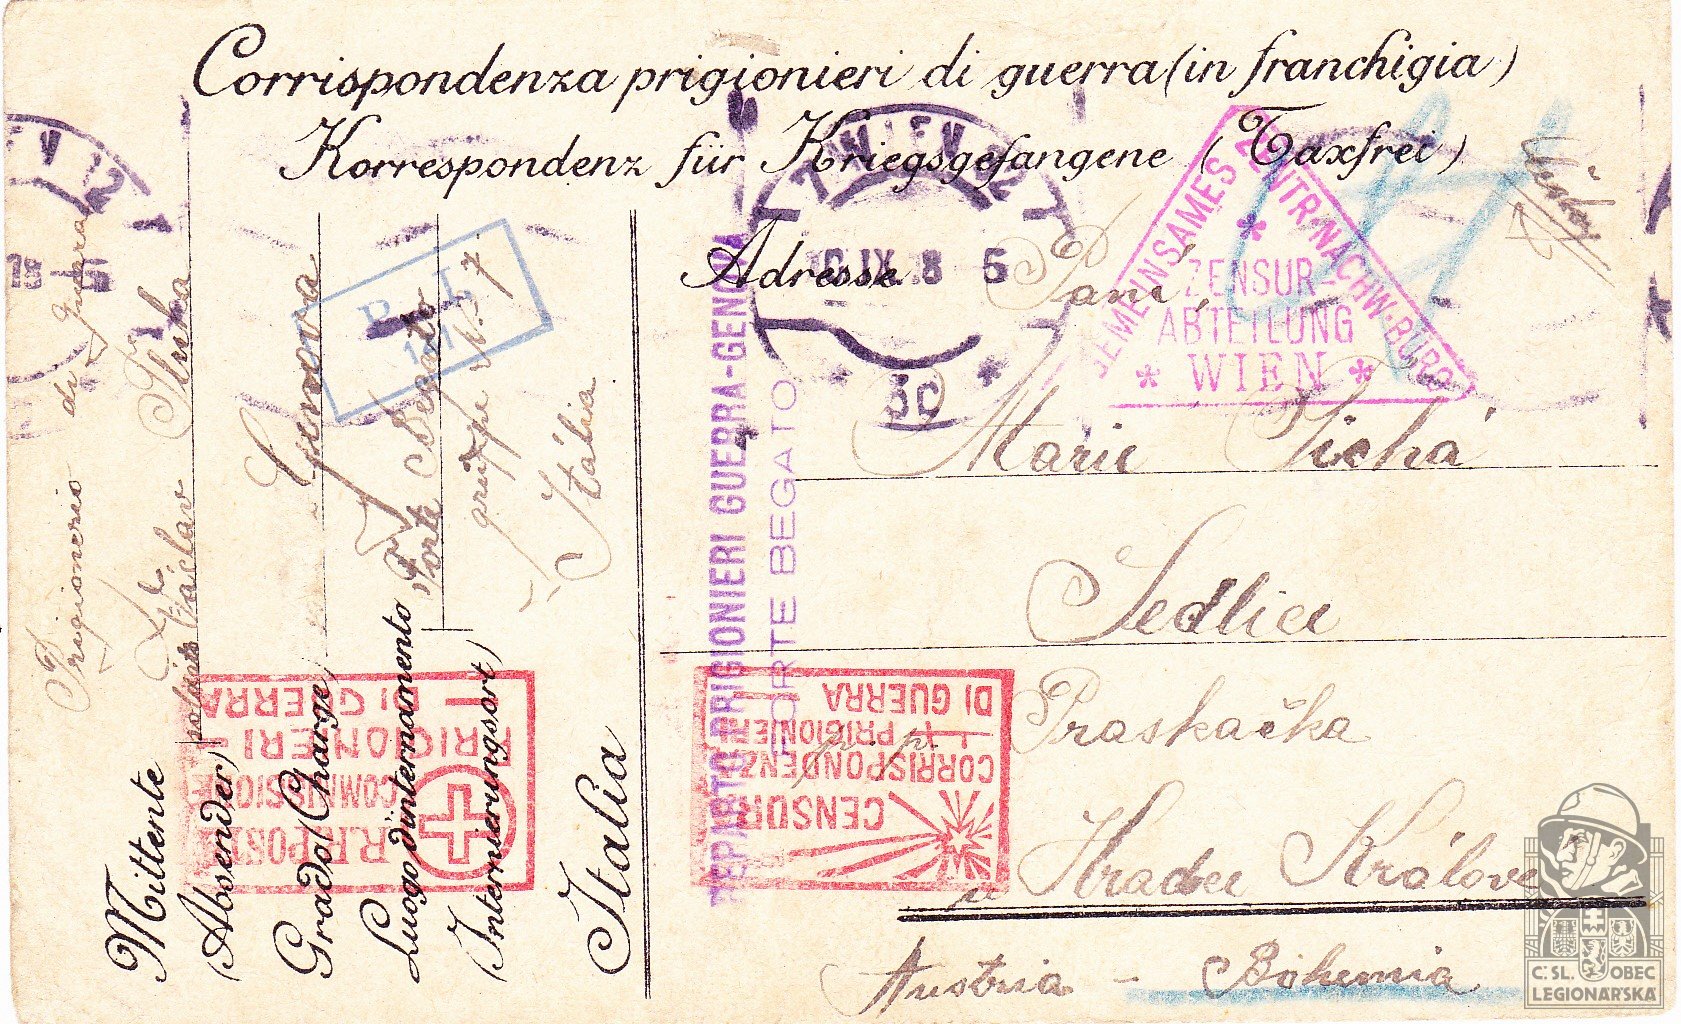 Corrispondenza prigionieri di guerra (in franchigia)
Korrespondenz für Kriegsgefangene (Taxfrei)
Adresse
Paní,
Marie Tichá
Sedlice
p. p. Praskačka
u Hradce Králové
Austria - Bohemia
Prigionerio di guerra
Mittente
(Absender)
soldato Václav
Grado (Charge)
Luogo d'internamento
(Internierungsort)
Genova
Forte Begato
gruppe N. 7.
Itália
Italia
REPARTO PRIGIONIERI GUERRA-GENOVA
FORTE BEGATO
GEMEINSAMES ZENTR. NACHW. BÜRO
ZENSUR-
ABTEILUNG
WIEN
7 WIEN 2
IX 8 6
CENSURA
CORRISPONDENZA
PRIGIONIERI
DI GUERRA
R.R. POSTE
COMMISSIONE
PRIGIONIERI
DI GUERRA
Č.SL. OBEC
LEGIONÁŘSKÁ